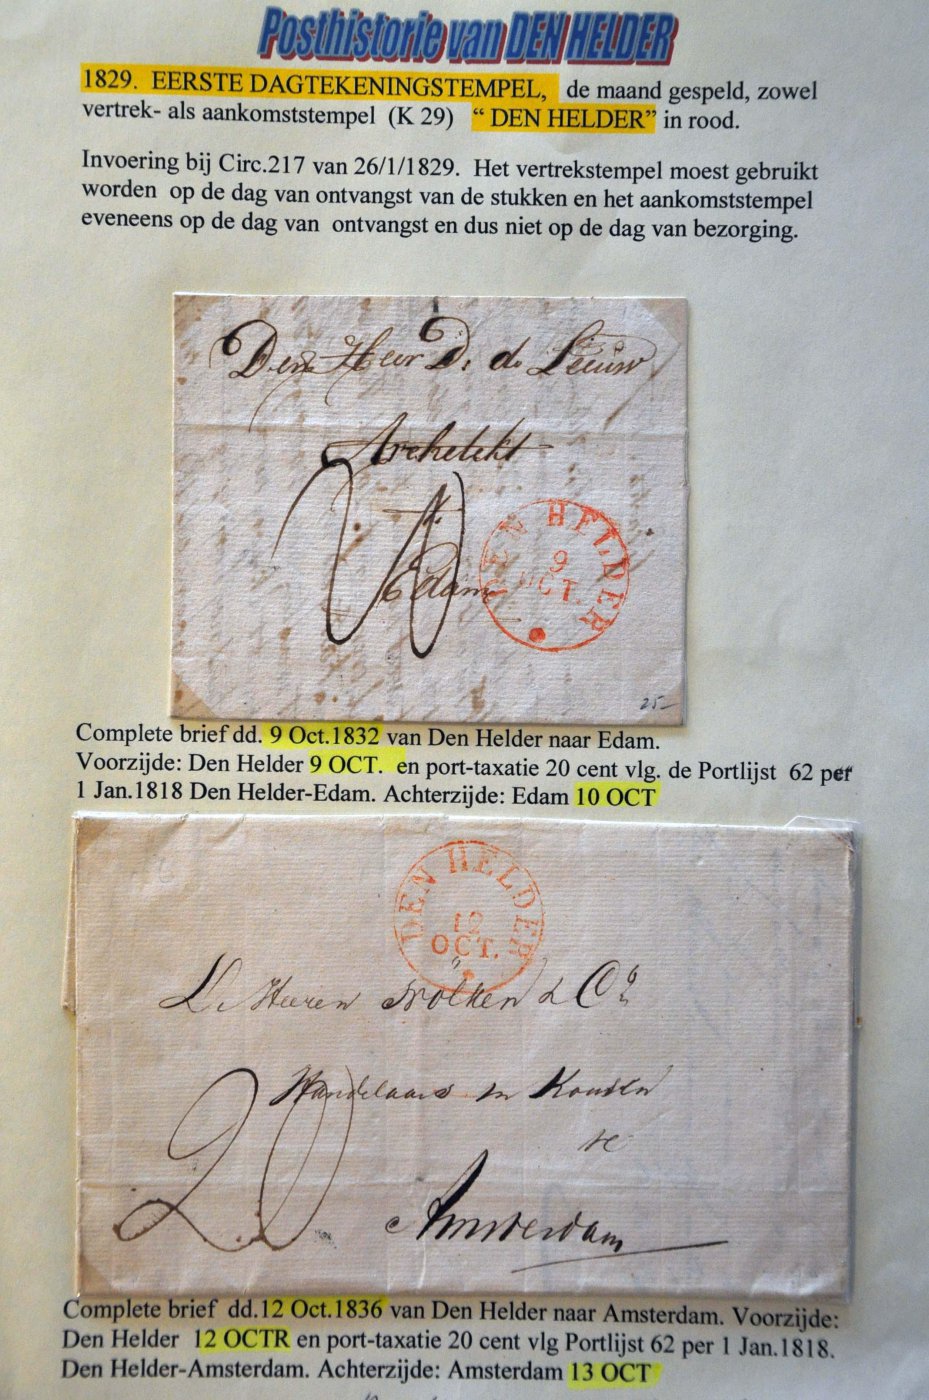 Posthistorie van DEN HELDER
1829. EERSTE DAGTEKENINGSTEMPEL, de maand gespeld, zowel
vertrek- als aankomststempel (K 29) “ DEN HELDER” in rood.
Invoering bij Circ.217 van 26/1/1829. Het vertrekstempel moest gebruikt
worden op de dag van ontvangst van de stukken en het aankomststempel
eveneens op de dag van ontvangst en dus niet op de dag van bezorging.
Den Heer D. de Leeuw
Architekt
te
Edam
20
DEN HELDER
9
OCT.
25-
Complete brief dd. 9 Oct.1832 van Den Helder naar Edam.
Voorzijde: Den Helder 9 OCT. en port-taxatie 20 cent vlg. de Portlijst 62 per
1 Jan.1818 Den Helder-Edam. Achterzijde: Edam 10 OCT
DEN HELDER
12
OCT.
Heeren & Co
Handelaars in
te
Amsterdam
20
Complete brief dd.12 Oct.1836 van Den Helder naar Amsterdam. Voorzijde:
Den Helder 12 OCTR en port-taxatie 20 cent vlg Portlijst 62 per 1 Jan.1818.
Den Helder-Amsterdam. Achterzijde: Amsterdam 13 OCT